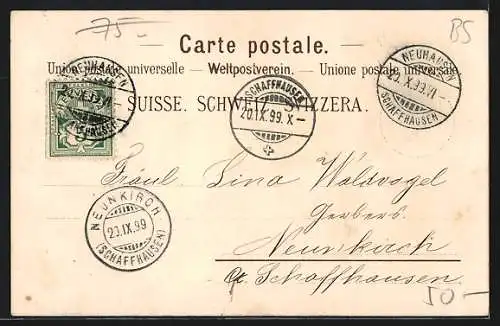 75.-
BS
Carte postale.
Union postale universelle. – Weltpostverein. – Unione postale universale.
SUISSE. SCHWEIZ. SVIZZERA.
NEUHAUSEN
(SCHAFFHAUSEN)
SCHAFFHAUSEN
20.IX.99.X–
NEUHAUSEN
20.IX.99.VI
(SCHAFFHAUSEN)
Fräul. Lina Waldvogel
Gerbers
Neunkirch
Ct. Schaffhausen.
NEUNKIRCH
20.IX.99
(SCHAFFHAUSEN)
50.-